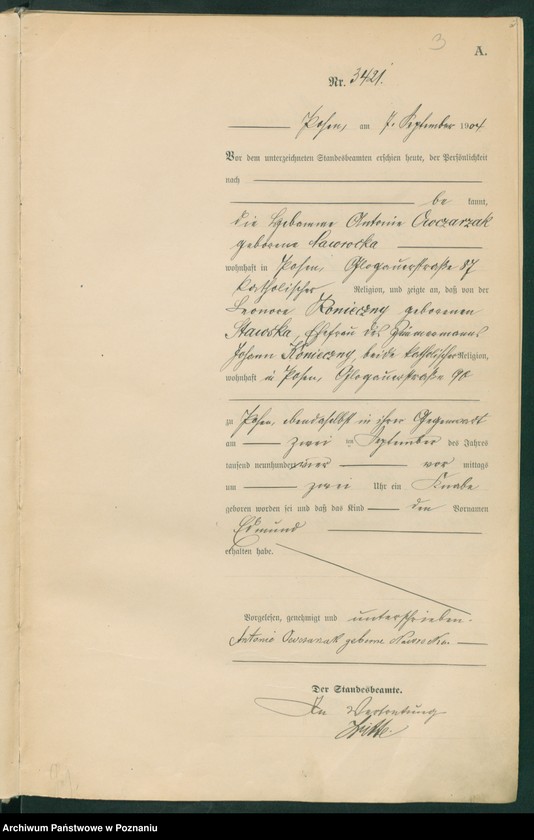 3
A.
Nr. 3421.
Posen, am 7. September 1904
Vor dem unterzeichneten Standesbeamten erschien heute, der Persönlichkeit
nach
be kannt,
die Hebamme Antonie Owczarzak
geborene Nawrocka
wohnhaft in Posen, Glogauerstraße 87
katholischer Religion, und zeigte an, daß von der
Leonore Konieczny geborenen
Stawska, Ehefrau des Zimmermanns
Johann Konieczny, beide katholischer Religion,
wohnhaft in Posen, Glogauerstraße 90
zu Posen, ebendaselbst in ihrer Gegenwart
am zwei ten September des Jahres
tausend neunhundert vier vor mittags
um zwei Uhr ein Knabe
geboren worden sei und daß das Kind den Vornamen
Edmund
erhalten habe.
Vorgelesen, genehmigt und unterschrieben.
Antonie Owczarzak geborene Nawrocka.
Der Standesbeamte.
In Vertretung
Archiwum Państwowe w Poznaniu